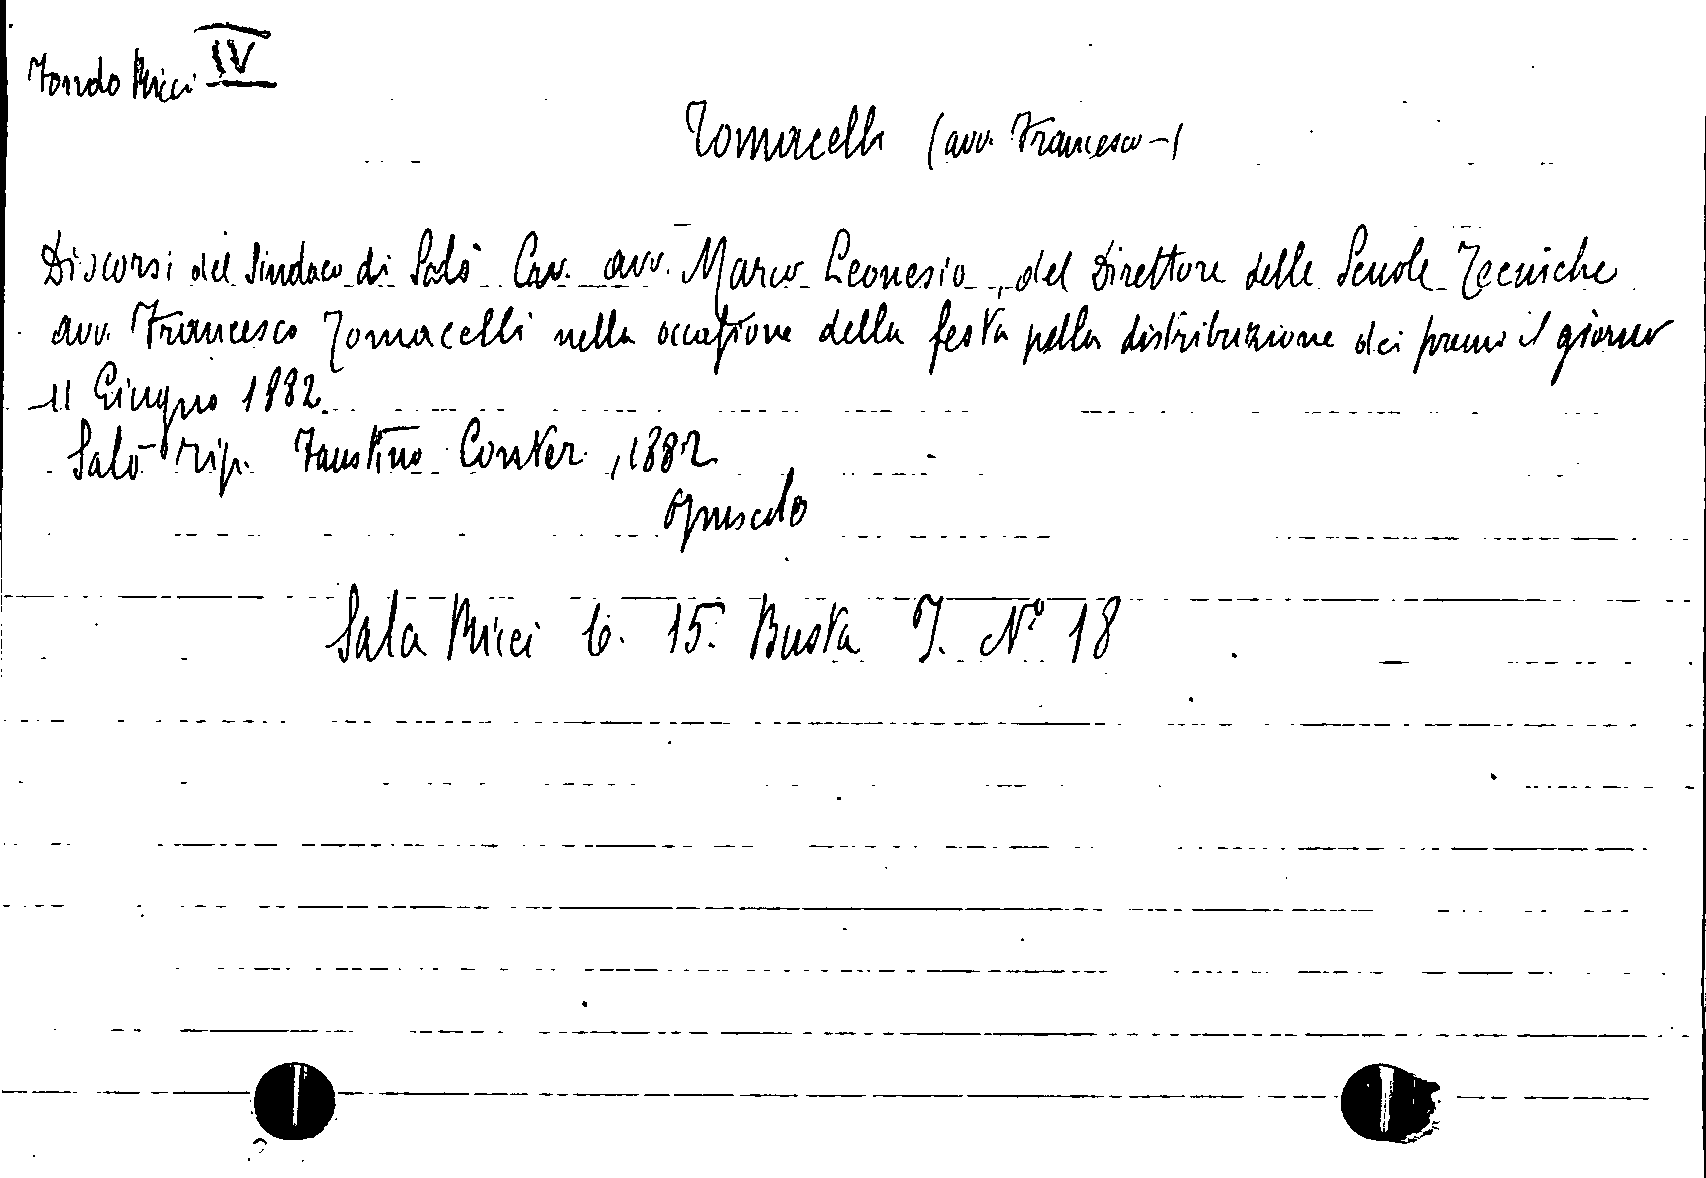 Fondo Ricci IV
Tomacelli (avv. Francesco -)
Discorsi del Sindaco di Salò Cav. avv. Marco Leonesio, del Direttore delle Scuole Tecniche
avv. Francesco Tomacelli nella occasione della festa pella distribuzione dei premi il giorno
11 Giugno 1882.
Salò Tip. Faustino Conter, 1882
opuscolo
Sala Ricci 6. 15. Busta I. Nº 18